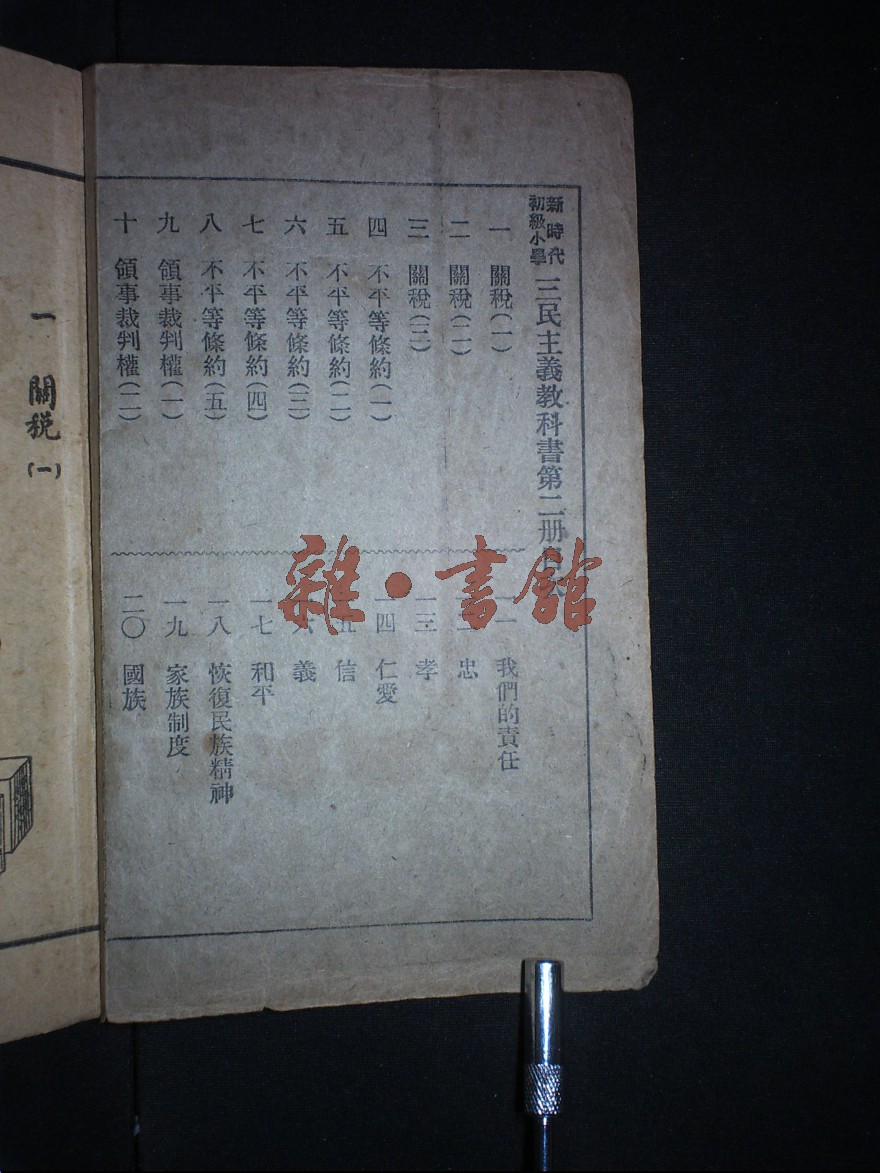 新時代
初級小學
三民主義教科書第二册目
一　關稅(一)
二　關稅(二)
三　關稅(三)
四　不平等條約(一)
五　不平等條約(二)
六　不平等條約(三)
七　不平等條約(四)
八　不平等條約(五)
九　領事裁判權(一)
十　領事裁判權(二)
一一　我們的責任
一二　忠
一三　孝
一四　仁愛
一五　信
一六　義
一七　和平
一八　恢復民族精神
一九　家族制度
二〇　國族
一　關稅(一)
雜·書館